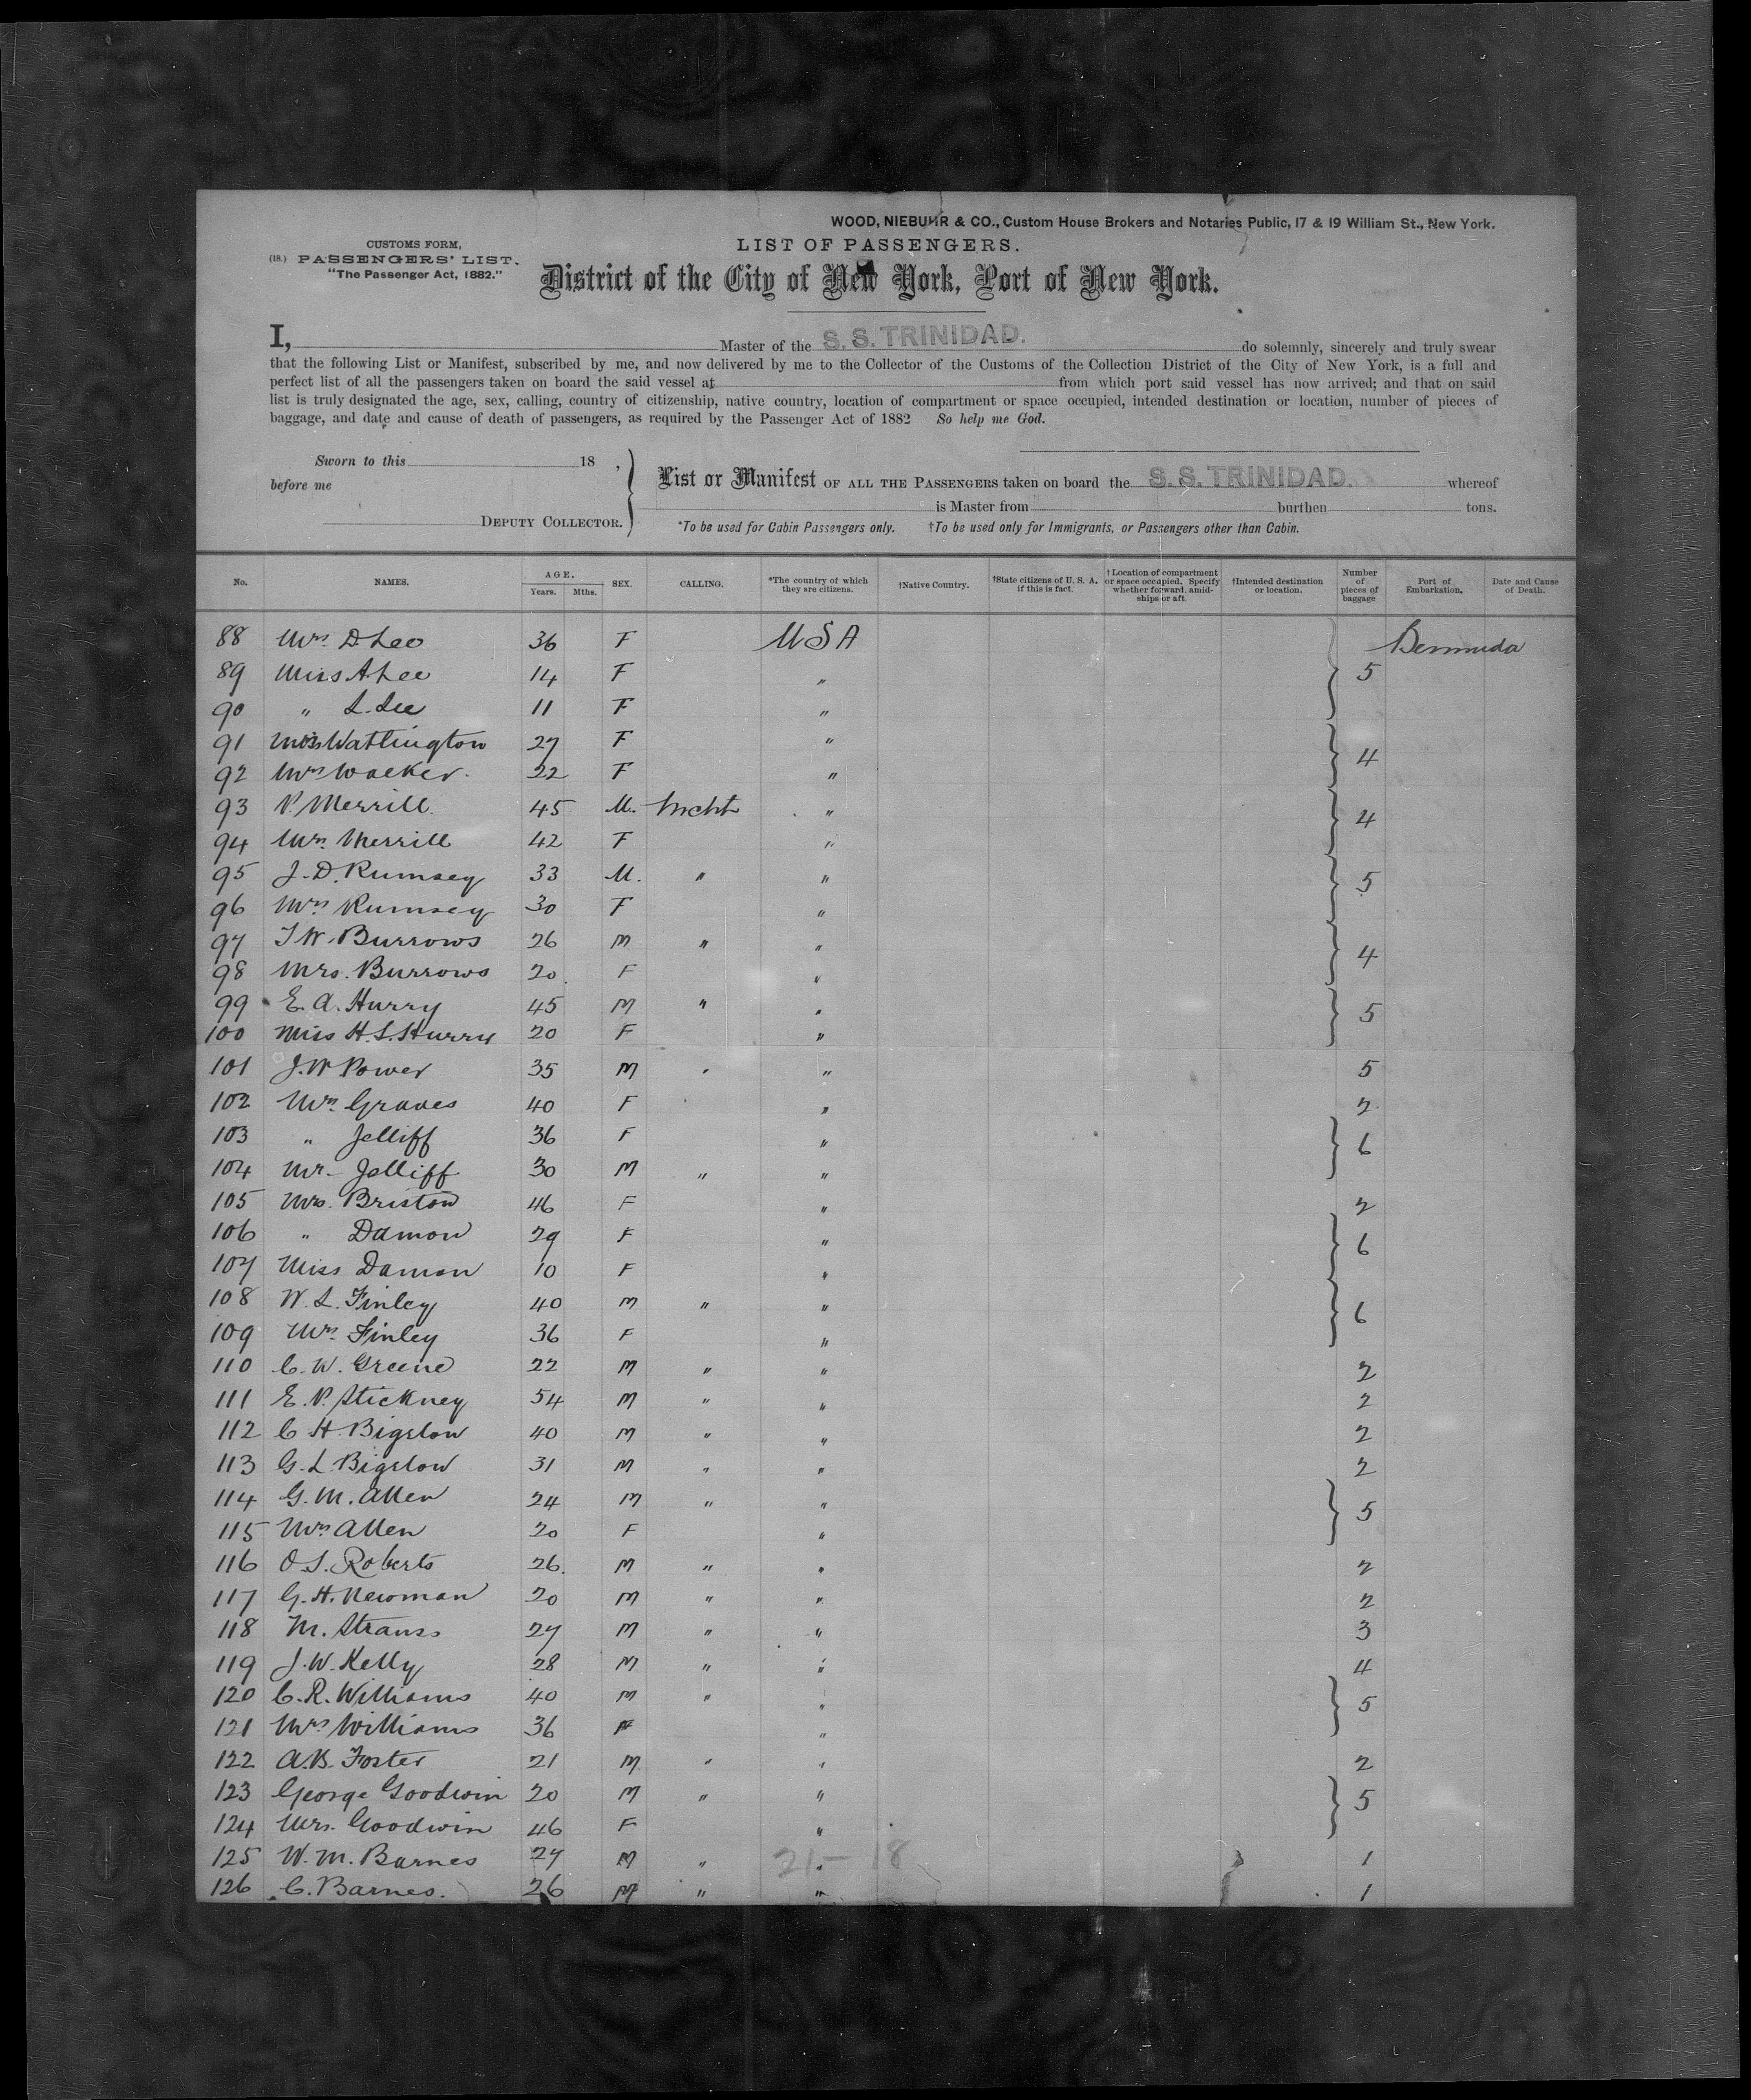 WOOD, NIEBUHR & CO., Custom House Brokers and Notaries Public, 17 & 19 William St., New York.
CUSTOMS FORM,
(18.) PASSENGERS' LIST.
"The Passenger Act, 1882."
LIST OF PASSENGERS.
District of the City of New York, Port of New York.
I, Master of the S. S. TRINIDAD. do solemnly, sincerely and truly swear
that the following List or Manifest, subscribed by me, and now delivered by me to the Collector of the Customs of the Collection District of the City of New York, is a full and
perfect list of all the passengers taken on board the said vessel at from which port said vessel has now arrived; and that on said
list is truly designated the age, sex, calling, country of citizenship, native country, location of compartment or space occupied, intended destination or location, number of pieces of
baggage, and date and cause of death of passengers, as required by the Passenger Act of 1882 So help me God.
Sworn to this 18 ,
before me
DEPUTY COLLECTOR.
List or Manifest OF ALL THE PASSENGERS taken on board the S. S. TRINIDAD. whereof
is Master from burthen tons.
*To be used for Cabin Passengers only. †To be used only for Immigrants, or Passengers other than Cabin.
No. NAMES. AGE. Years. Mths. SEX. CALLING. *The country of which they are citizens. †Native Country. †State citizens of U. S. A. if this is fact. †Location of compartment or space occupied. Specify whether forward, amidships or aft. †Intended destination or location. Number of pieces of baggage Port of Embarkation. Date and Cause of Death.
88 Mrs. D. Lee 36 F USA Bermuda
89 Miss A Lee 14 F " 5
90 " L. Lee 11 F "
91 Watlington 27 F " 4
92 Mrs Walker. 22 F "
93 P. Merrill 45 M. Mcht " 4
94 Mrs. Merrill 42 F "
95 J. D. Rumsey 33 M. " " 5
96 Mrs. Rumsey 30 F "
97 T W. Burrows 26 M " " 4
98 Mrs. Burrows 20. F "
99 E. A. Hurry 45 M " " 5
100 Miss H. S. Hurry 20 F "
101 J. W Power 35 M " " 5
102 Mrs. Graves 40 F " 2
103 " Jelliff 36 F " 6
104 Mr. Jelliff 30 M " "
105 Mrs. Bristow 46 F " 2
106 " Damon 29 F " 6
107 Miss Damon 10 F "
108 W. L. Finley 40 M " " 6
109 Mrs. Finley 36 F "
110 C. W. Greene 22 M " " 2
111 E. P. Stickney 54 M " " 2
112 C H. Bigelow 40 M " " 2
113 G. L Bigelow 31 M " " 2
114 G. M. Allen 24 M " " 5
115 Mrs Allen 20 F "
116 O. S. Roberts 26. M " " 2
117 G. H. Newman 20 M " " 2
118 M. Strauss 27 M " " 3
119 J. W. Kelly 28 M " " 4
120 C. R. Williams 40 M " " 5
121 Mrs Williams 36 F "
122 A. B. Foster 21 M " " 2
123 George Goodwin 20 M " " 5
124 Mrs. Goodwin 46 F "
125 W. M. Barnes 27 M " " 21 - 18 1
126 C. Barnes. 26 M " " 1